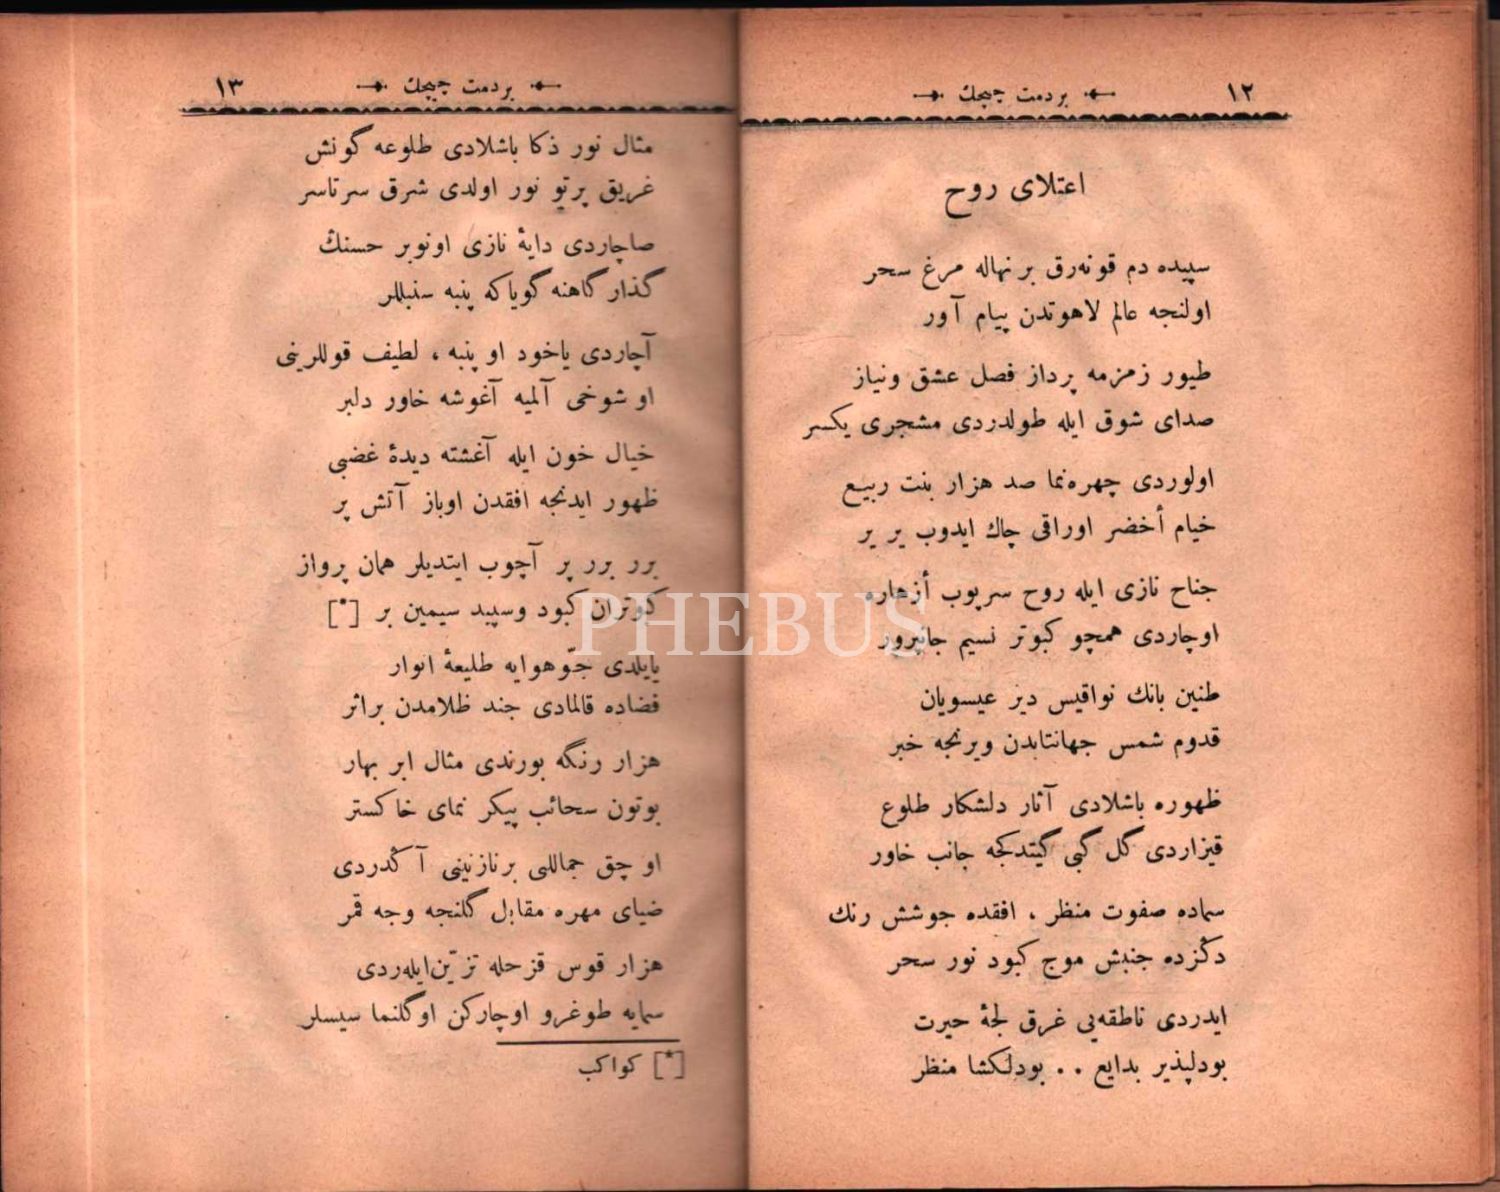 ١٢
بر دمت چيچك
اعتلاى روح
سپيده دم قونه‌رق بر نهاله مرغ سحر
اولنجه عالم لاهوتدن پيام آور
طيور زمزمه پرداز فصل عشق ونياز
صداى شوق ايله طولدردى مشجرى يكسر
اولوردى چهره‌نما صد هزار بنت ربيع
خيام أخضر اوراقى چاك ايدوب ير ير
جناح نازى ايله روح سرپوب أزهاره
اوچاردى همچو كبوتر نسيم جانپرور
طنين بانك نواقيس دير عيسويان
قدوم شمس جهانتابدن ويرنجه خبر
ظهوره باشلادى آثار دلشكار طلوع
قيزاردى گل گبى گيتدكجه جانب خاور
سماده صفوت منظر ، افقده جوشش رنك
دكزده جنبش موج كبود نور سحر
ايدردى ناطقه‌يى غرق لجۀ حيرت
بودلپذير بدايع . . بودلكشا منظر
١٣
بر دمت چيچك
مثال نور ذكا باشلادى طلوعه گونش
غريق پرتو نور اولدى شرق سرتاسر
صاچاردى دايۀ نازى اونوبر حسنك
گذار گاهنه گوياكه پنبه سنبللر
آچاردى ياخود او پنبه ، لطيف قوللرينى
او شوخى آلميه آغوشه خاور دلبر
خيال خون ايله آغشته ديدۀ غضبى
ظهور ايدنجه افقدن اوباز آتش پر
برر برر پر آچوب ايتديلر همان پرواز
كبوتران كبود وسپيد سيمين بر [*]
يايلدى جوّ هوايه طليعۀ انوار
فضاده قالمادى جند ظلامدن براثر
هزار رنگه بورندى مثال ابر بهار
بوتون سحائب پيكر نماى خاكستر
او چق جماللى برنازنينى آكدردى
ضياى مهره مقابل گلنجه وجه قمر
هزار قوس قزحله تزيّن ايله‌ردى
سمايه طوغرو اوچاركن اوگلنما سيسلر
[*] كواكب
PHEBUS